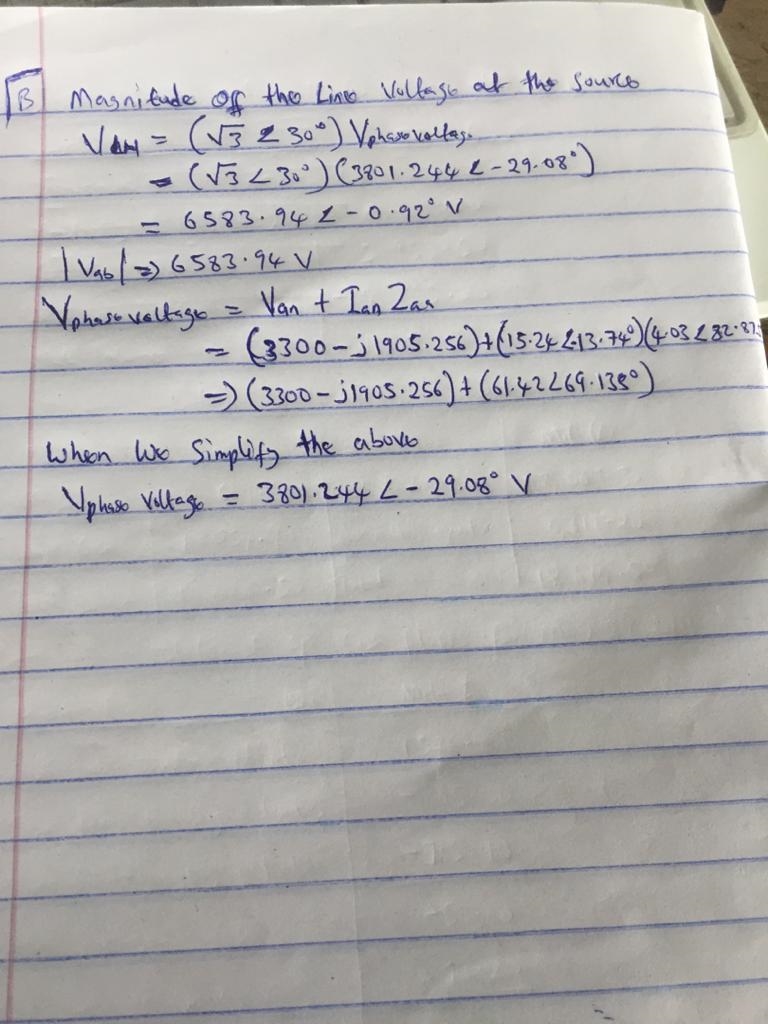 B Magnitude off the Line Voltage at the source
= (√3 ∠ 30°) Vphasevoltage
= (√3 ∠ 30°) (3801.244 ∠ -29.08°)
= 6583.94 ∠ -0.92° V
|Vab| => 6583.94 V
Vphasevoltage = Van + Ian Zan
= (3300 - j1905.256) + (15.24 ∠ -13.74°) (4.03 ∠ 82.87
=> (3300 - j1905.256) + (61.42 ∠ 69.138°)
When We Simplify the above
Vphase Voltage = 3801.244 ∠ -29.08° V